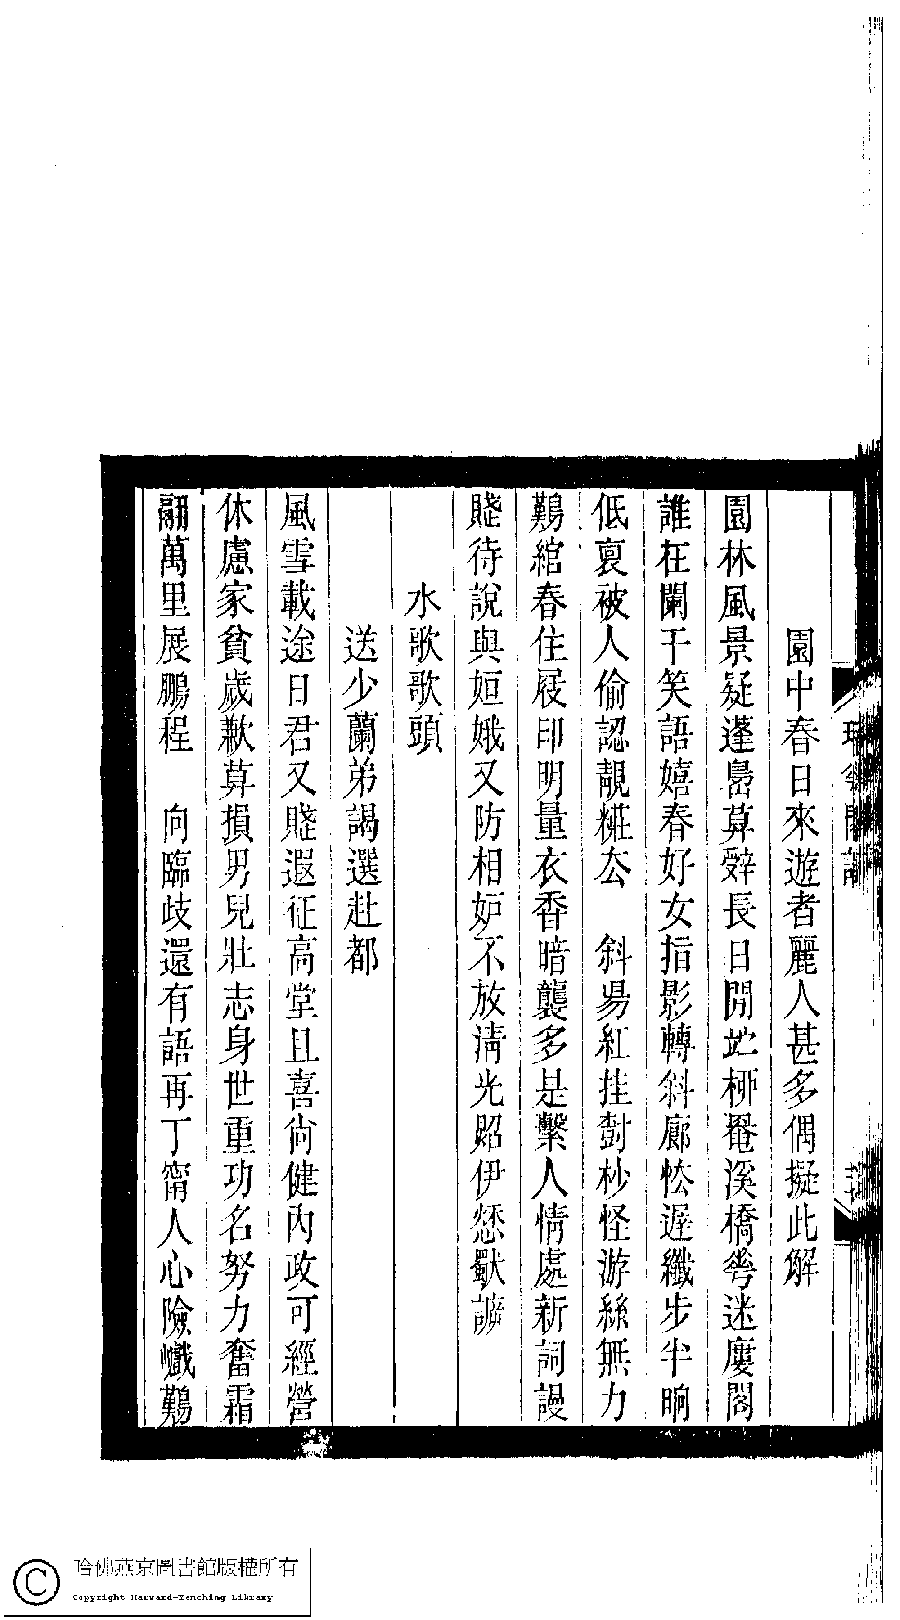 園中春日來遊者麗人甚多偶擬此解
園林風景疑蓬島算辤長日閒地桺罨溪橋蕐迷廔閣
誰在闌干笑語嬉春好女指影轉斜廊忪遲纖步半晌
低裒被人偷認靚糚厺　斜昜紅挂對杪怪游絲無力
鷬綰春住屐印明量衣香暗襲多是繫人情處新詞謾
賤待說與姮娥又防相妒不放淸光照伊愁獃謔
水歌歌頭
送少蘭弟謁選赴都
風雪載途日君又賤遐征高堂且喜尙健內政可經營
休慮家貧歲歉算損男兒壯志身世重功名努力奮霜
翮萬里展鵬程　向臨歧還有語再丁甯人心險巇鷬
哈佛燕京圖書館版權所有
Copyright Harvard-Yenching Library